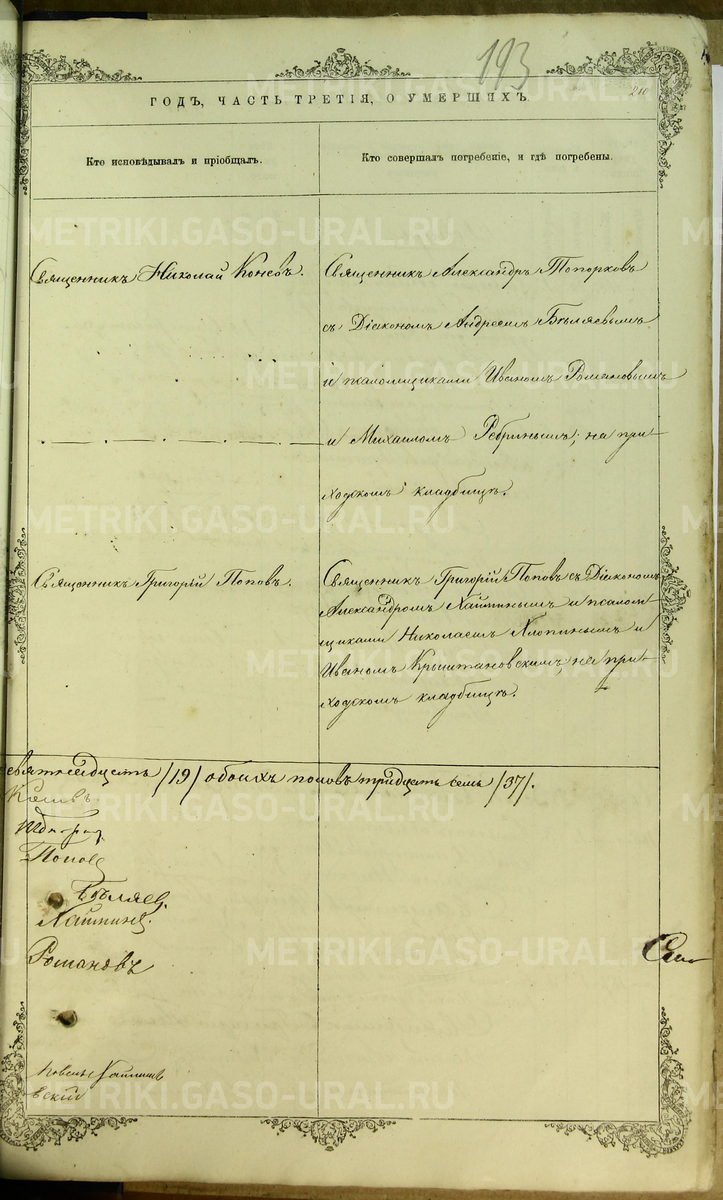 193
210
ГОДЪ, ЧАСТЬ ТРЕТІЯ, О УМЕРШИХЪ.
Кто исповѣдывалъ и пріобщалъ.
Кто совершалъ погребеніе, и гдѣ погребены.
Священникъ Николай Коневъ.
Священникъ Александръ Топорковъ
съ Діакономъ Андреемъ Бѣляевымъ
и псаломщиками Иваномъ Романовымъ
и Михаиломъ Ребринымъ; на при-
ходскомъ кладбищѣ.
Священникъ Григорій Поповъ.
Священникъ Григорій Поповъ съ Діакономъ
Александромъ Хайминымъ и псалом-
щиками Николаемъ Хлопинымъ и
Иваномъ Крыштановскимъ, на при-
ходскомъ кладбищѣ.
евятнадцать /19/ обоихъ половъ тридцать семь /37/.
Поповъ
Бѣляев.
Хайминъ.
Романовъ
вскій
METRIKI.GASO-URAL.RU